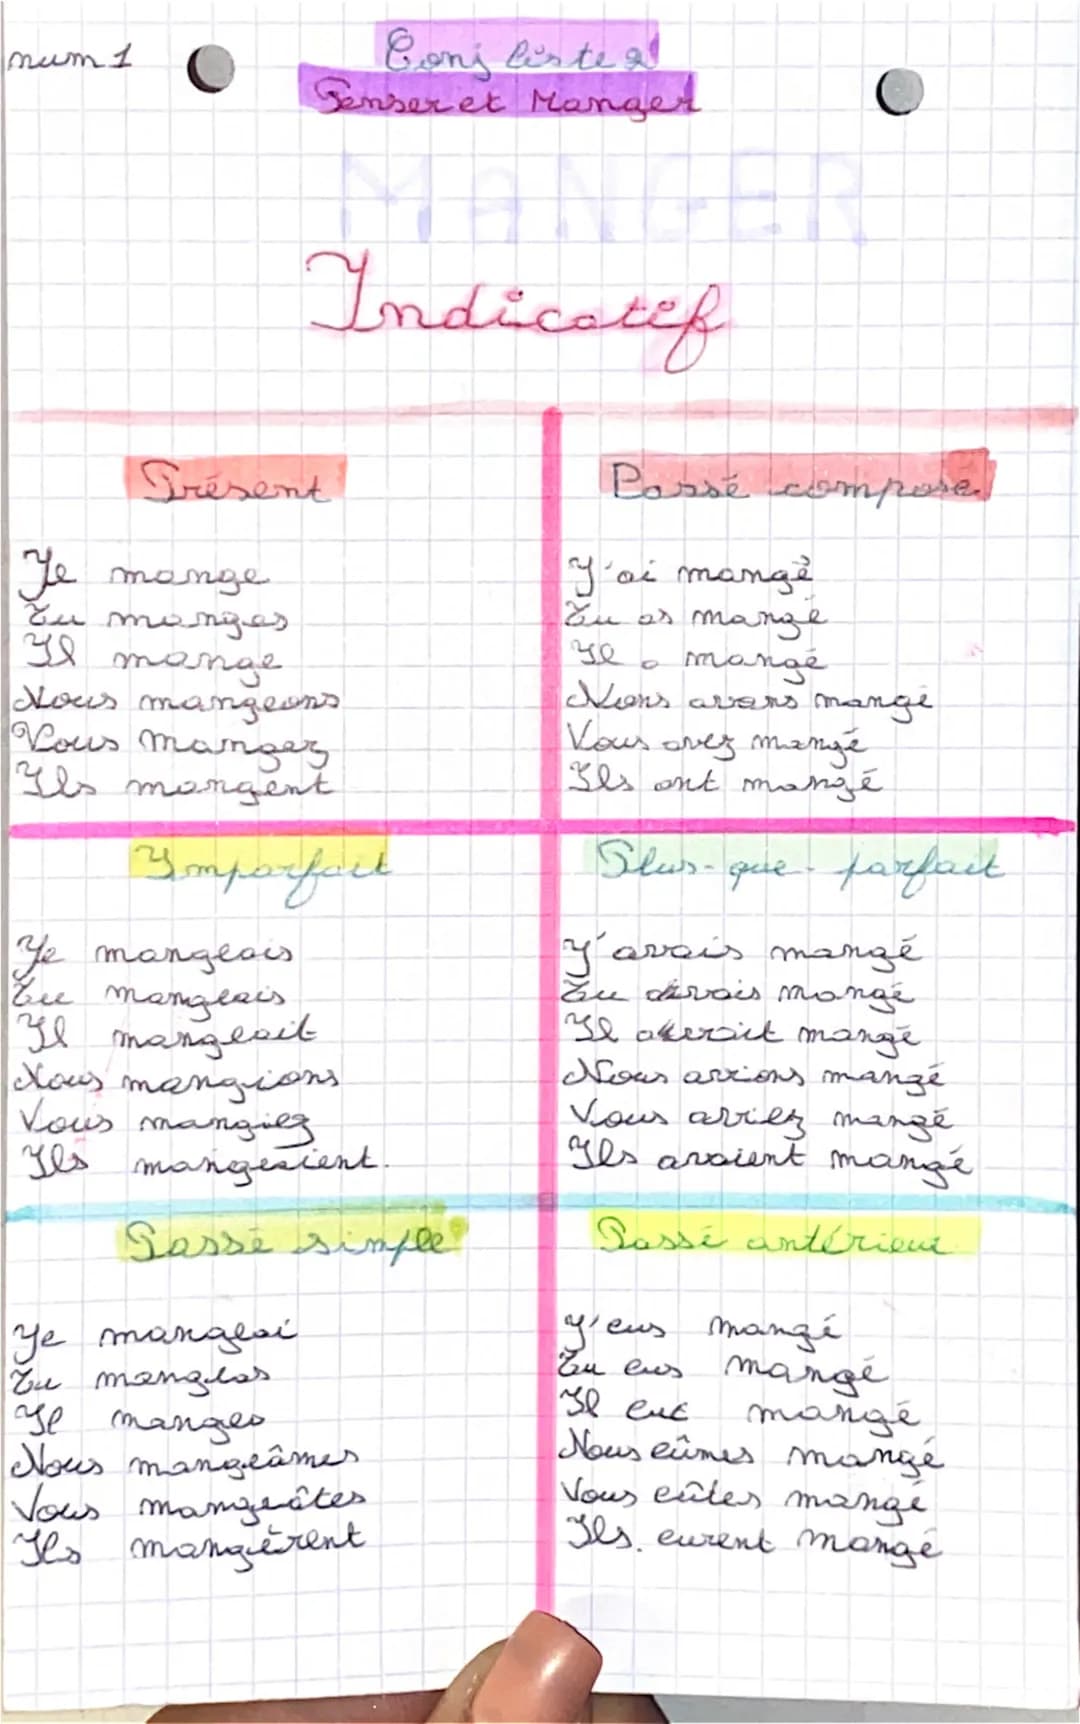 num 1
Conj liste 2
Penser et Manger
MANGER
Indicatif
Présent
Je mange
Tu manges
Il mange
Nous mangeons
Vous mangez
Ils mangent
Passé composé
J'ai mangé
Tu as mangé
Il a mangé
Nous avons mangé
Vous avez mangé
Ils ont mangé
Imparfait
Je mangeais
Tu mangeais
Il mangeait
Nous mangions
Vous mangiez
Ils mangeaient.
Plus-que-parfait
J'avais mangé
Tu avais mangé
Il avait mangé
Nous avions mangé
Vous aviez mangé
Ils avaient mangé
Passé simple
Je mangeai
Tu mangeas
Il mangea
Nous mangeâmes
Vous mangeâtes
Ils mangèrent
Passé antérieur
J'eus mangé
Tu eus mangé
Il eut mangé
Nous eûmes mangé
Vous eûtes mangé
Ils eurent mangé